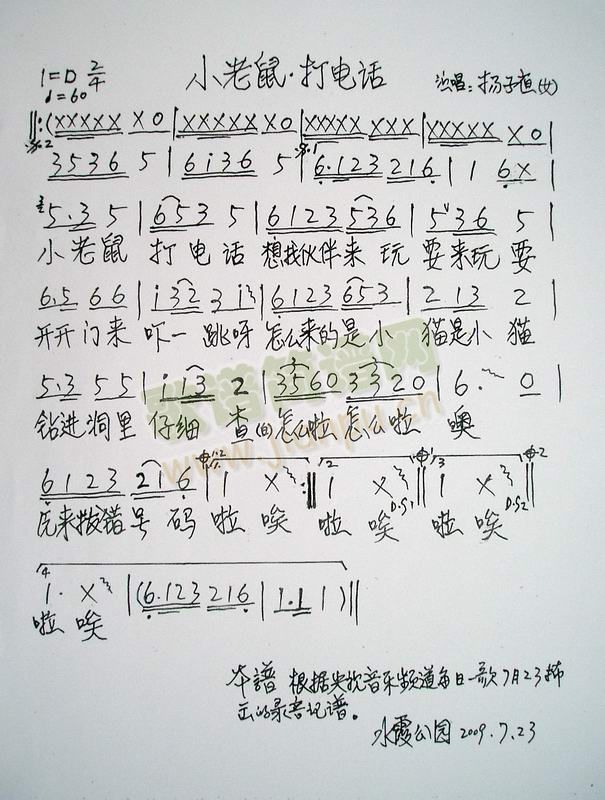 1=D 2/4 小老鼠·打电话 演唱:扬子

♩=60
‖:(XXXXX X0|XXXXX X0|XXXXX XXX|XXXXX X0|
3536 5|6i36 5|6.123 216|1 6X|
5.3 5|653 5|6123 536|536 5|
小老鼠 打电话 想找伙伴来玩 耍来玩耍
6.5 66|i32 3 i3|6123 653|2 13 2|
开开门来 吓一跳呀 怎么来的是小 猫是小猫
5.3 55|i i3 2|3560 3320|6. 0|
钻进洞里 仔细查(白)怎么啦 怎么啦 噢
6123 216|1 X:‖1 X‖1 X‖
原来拨错号码啦 唉 啦 唉 啦 唉
1. X|(6.123 216|1.1 1)‖
啦 唉
本譜 根据央视音乐频道每日一歌7月23播
出的录音记谱。
水霞公园 2009.7.23
歌谱简谱网
www.jianpu.cn